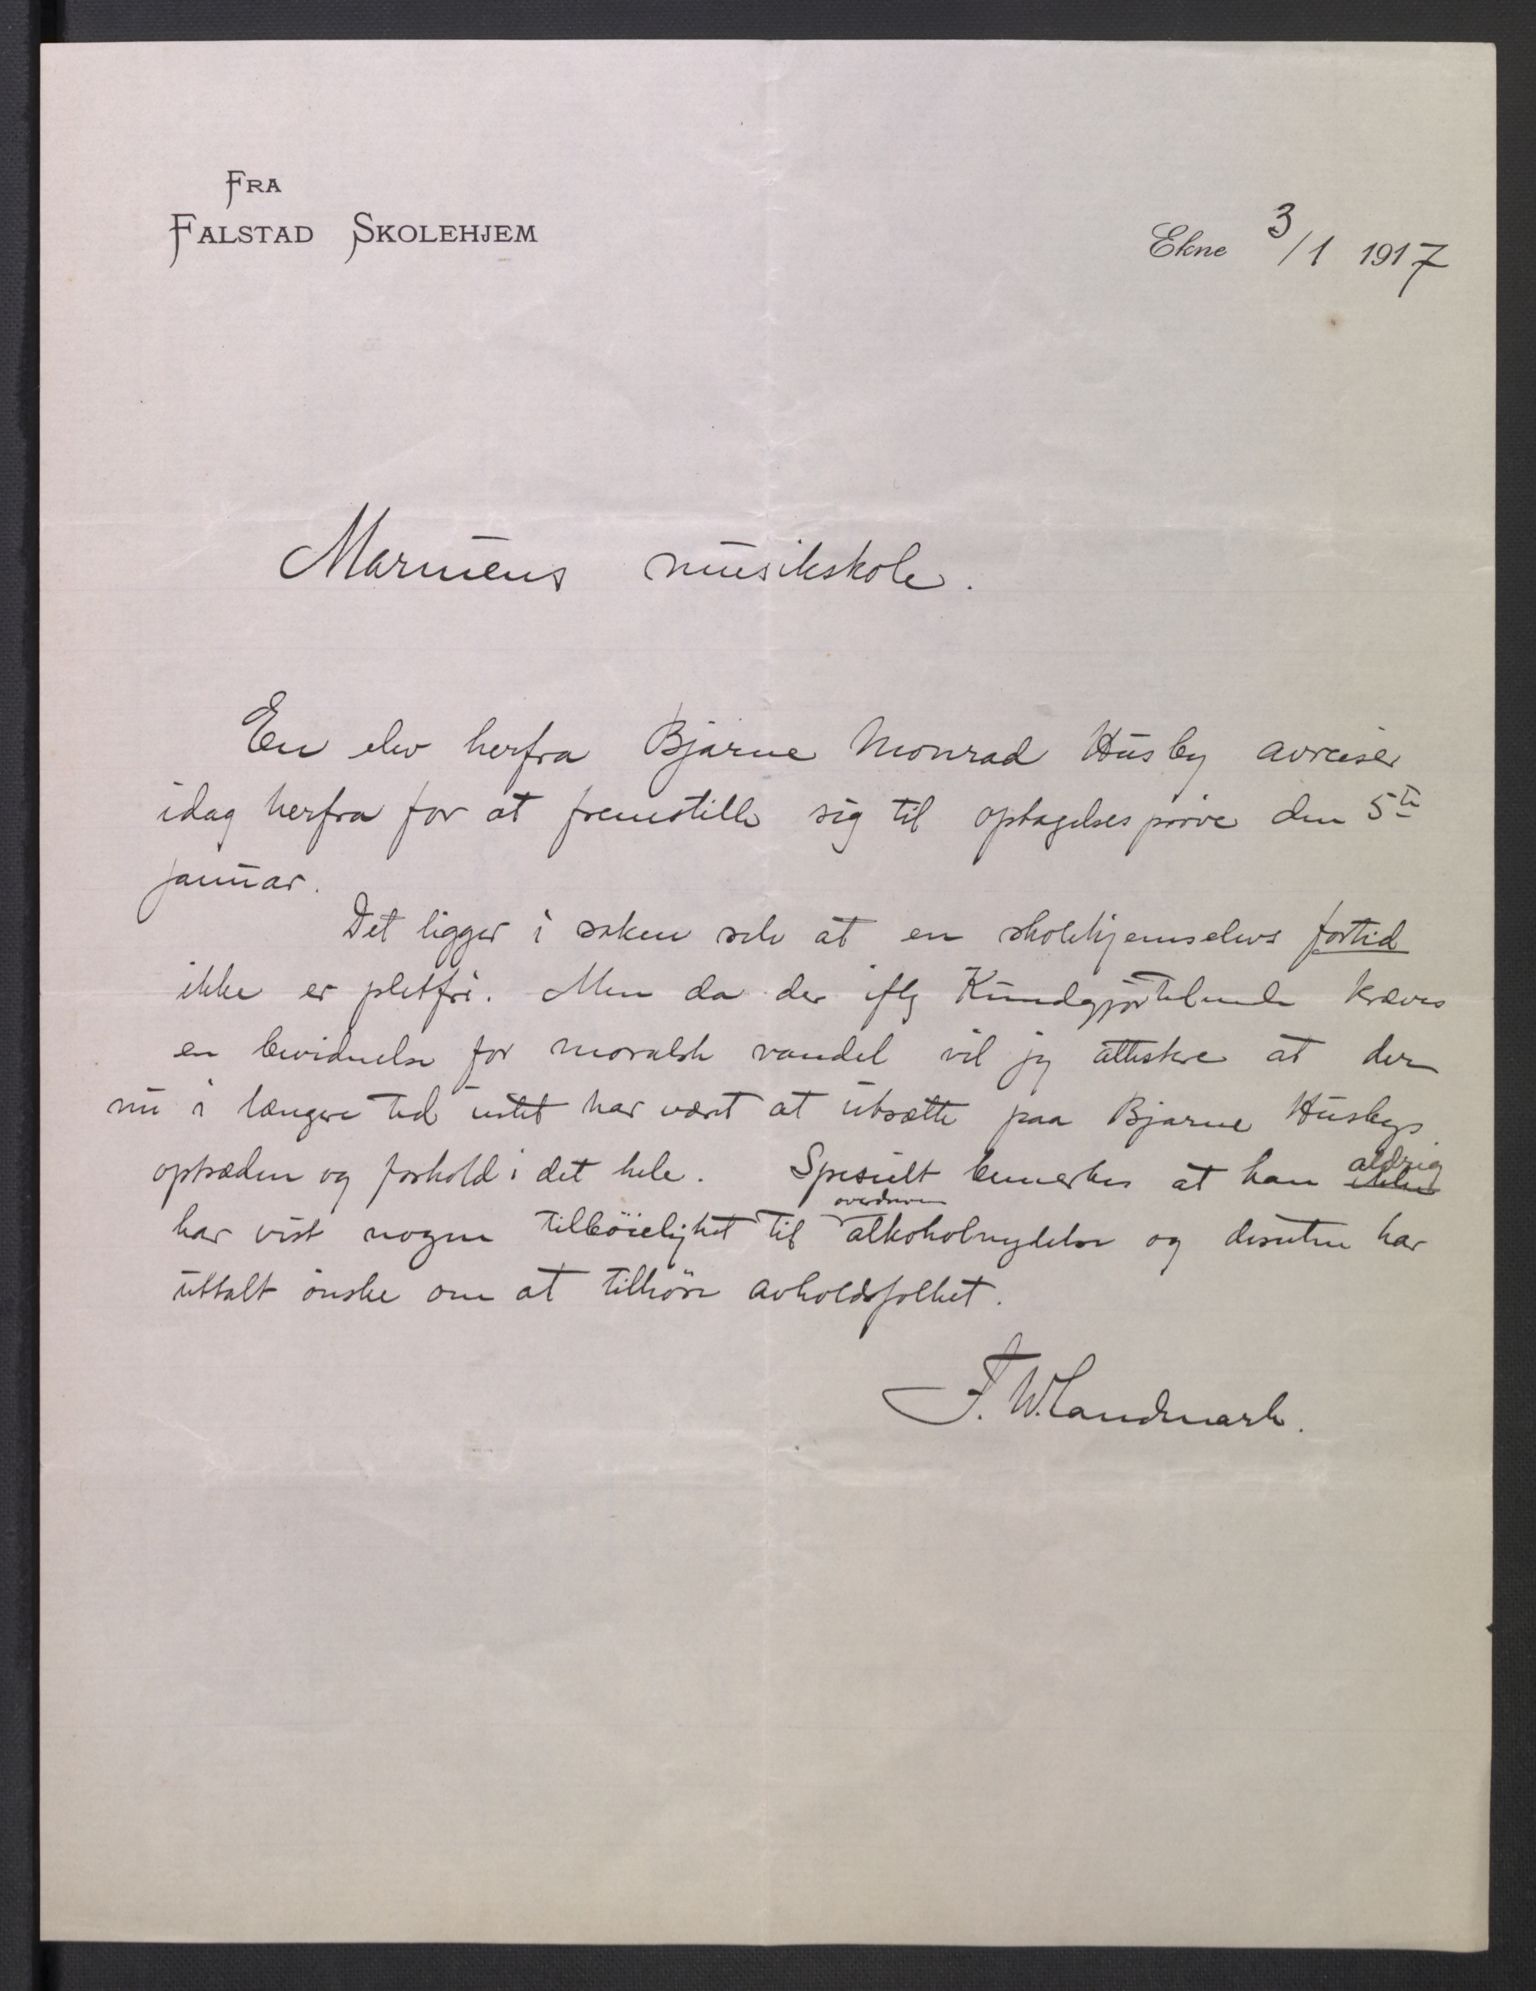 FRA
FALSTAD SKOLEHJEM
Ekne 3/1 1917
Marinens musikskole.
En elev herfra Bjarne Monrad Husby avreiser
idag herfra for at fremstille sig til optagelsesprøve den 5te
januar.
Det ligger i saken selv at en skolehjemselevs fortid
ikke er pletfri. Men da der iflg Kundgjørtelsen kræves
en bevidnelse for moralsk vandel vil jeg attestere at der
nu i længere tid intet har været at utsætte paa Bjarne Husbys
optræden og forhold i det hele. Specielt bemerkes at han ikke aldrig
har vist nogen tilbøielighet til overdreven alkoholnydelse og desuten har
uttalt ønske om at tilhøre avholdsfolket.
F. W. Landmark.